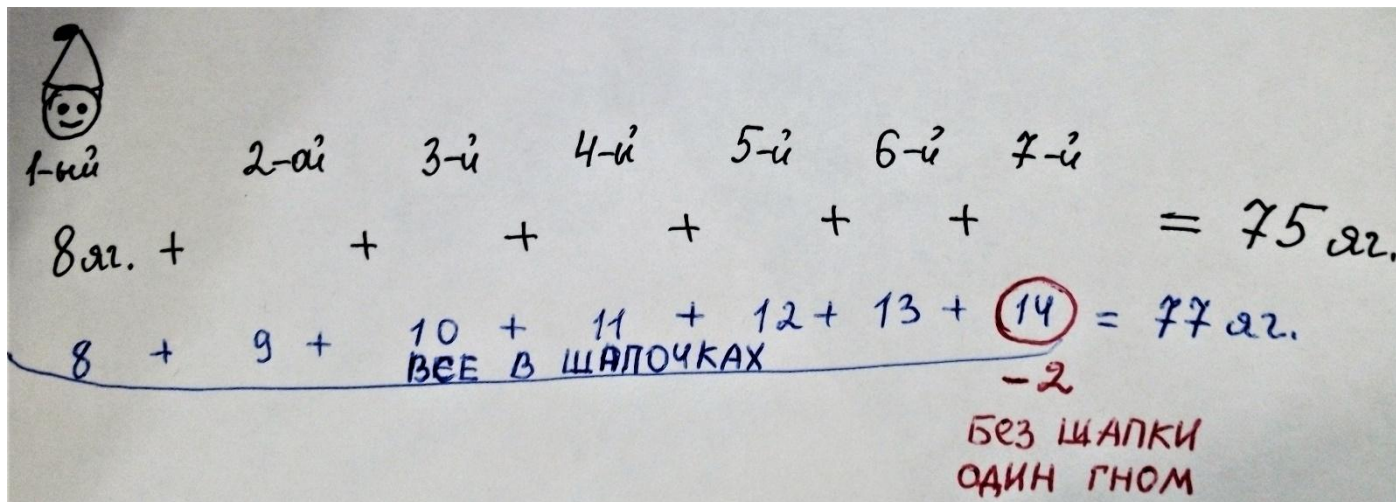 1-ый 2-ой 3-й 4-й 5-й 6-й 7-й
8яг. + + + + + + = 75 яг.
8 + 9 + 10 + 11 + 12 + 13 + 14 = 77 яг.
ВСЕ В ШАПОЧКАХ
-2
БЕЗ ШАПКИ
ОДИН ГНОМ